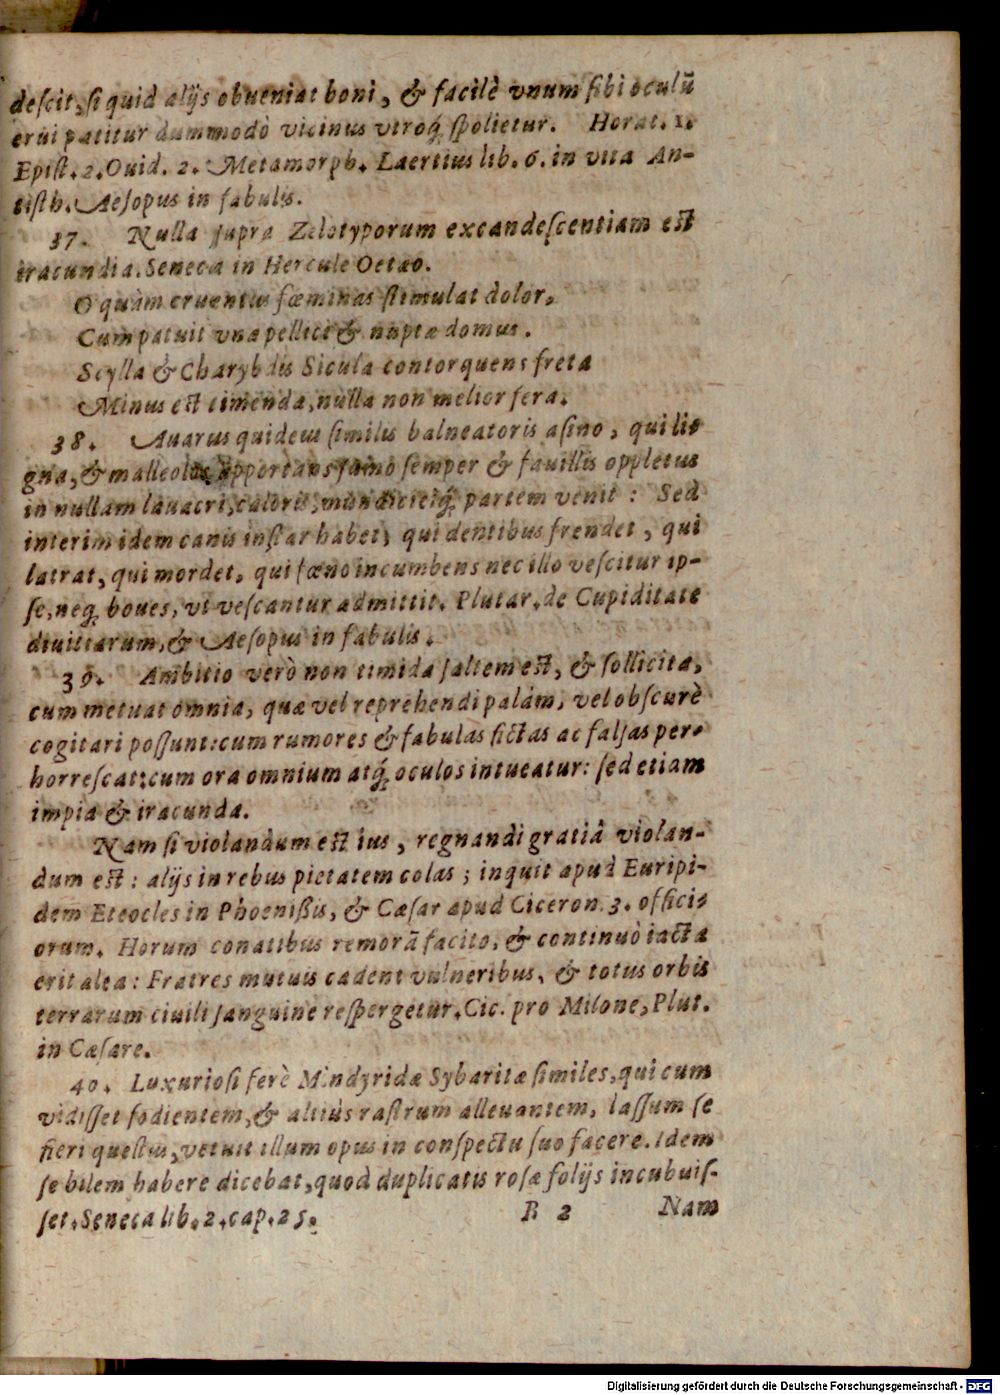 deſcit, ſi quid alijs obueniat boni, & facilè vnum ſibi oculū
erui patitur dummodò vicinus vtroq́; ſpolietur. Horat. 1.
Epiſt. 2. Ouid. 2. Metamorph. Laertius lib. 6. in vita An-
tiſth. Aeſopus in fabulis.
37. Nulla ſupra Zelotyporum excandeſcentiam eſt
iracundia. Seneca in Hercule Oetæo.
O quàm cruentus fœminas ſtimulat dolor,
Cum patuit vna pellici & nuptæ domus.
Scylla & Charybdis Sicula contorquens freta
Minus eſt timenda, nulla non melior fera.
38. Auarus quidem ſimilis balneatoris aſino, qui lig-
gna, & malleolos apportans fumo ſemper & fauillis oppletus
in nullam lauacri, caloris, mundicieiq́; partem venit: Sed
interim idem canis inſtar habet, qui dentibus frendet, qui
latrat, qui mordet, qui fœno incumbens nec illo veſcitur ip-
ſe, neq; boues, vt veſcantur admittit. Plutar. de Cupiditate
diuitiarum, & Aeſopus in fabulis.
39. Ambitio verò non timida ſaltem eſt, & ſollicita,
cum metuat omnia, quæ vel reprehendi palàm, vel obſcurè
cogitari poſſunt: cum rumores & fabulas fictas ac falſas per-
horreſcat: cum ora omnium atq́; oculos intueatur: ſed etiam
impia & iracunda.
Nam ſi violandum eſt ius, regnandi gratiâ violan-
dum eſt: alijs in rebus pietatem colas; inquit apud Euripi-
dem Eteocles in Phoenißis, & Cæſar apud Ciceron. 3. offici-
orum. Horum conatibus remorā facito, & continuò iacta
erit alea: Fratres mutuis cadent vulneribus, & totus orbis
terrarum ciuili ſanguine reſpergetur. Cic. pro Milone, Plut.
in Cæſare.
40. Luxurioſi ferè Mindyridæ Sybaritæ ſimiles, qui cum
vidiſſet fodientem, & altiùs raſtrum alleuantem, laſſum ſe
fieri queſtus, vetuit illum opus in conſpectu ſuo facere. Idem
ſe bilem habere dicebat, quod duplicatis roſæ folijs incubuiſ-
ſet. Seneca lib. 2. cap. 25. R 2 Nam
Digitalisierung gefördert durch die Deutsche Forschungsgemeinschaft - DFG